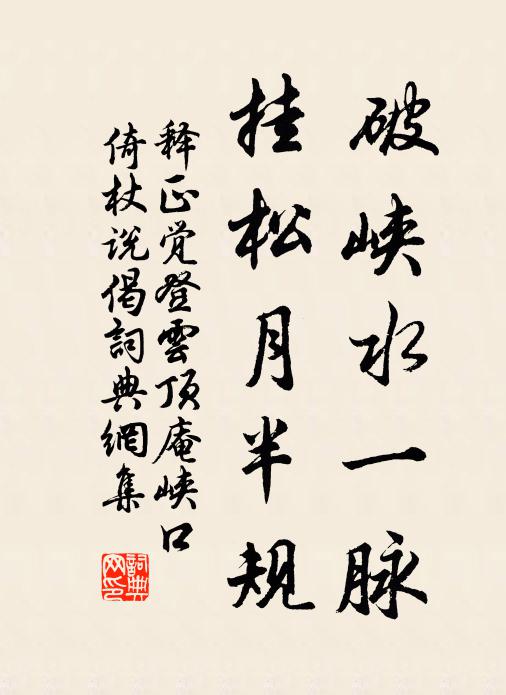 破峡水一脉
挂松月半规
释正觉登雲顶庵峡口
倚杖说偈詞典網集
詞典网印